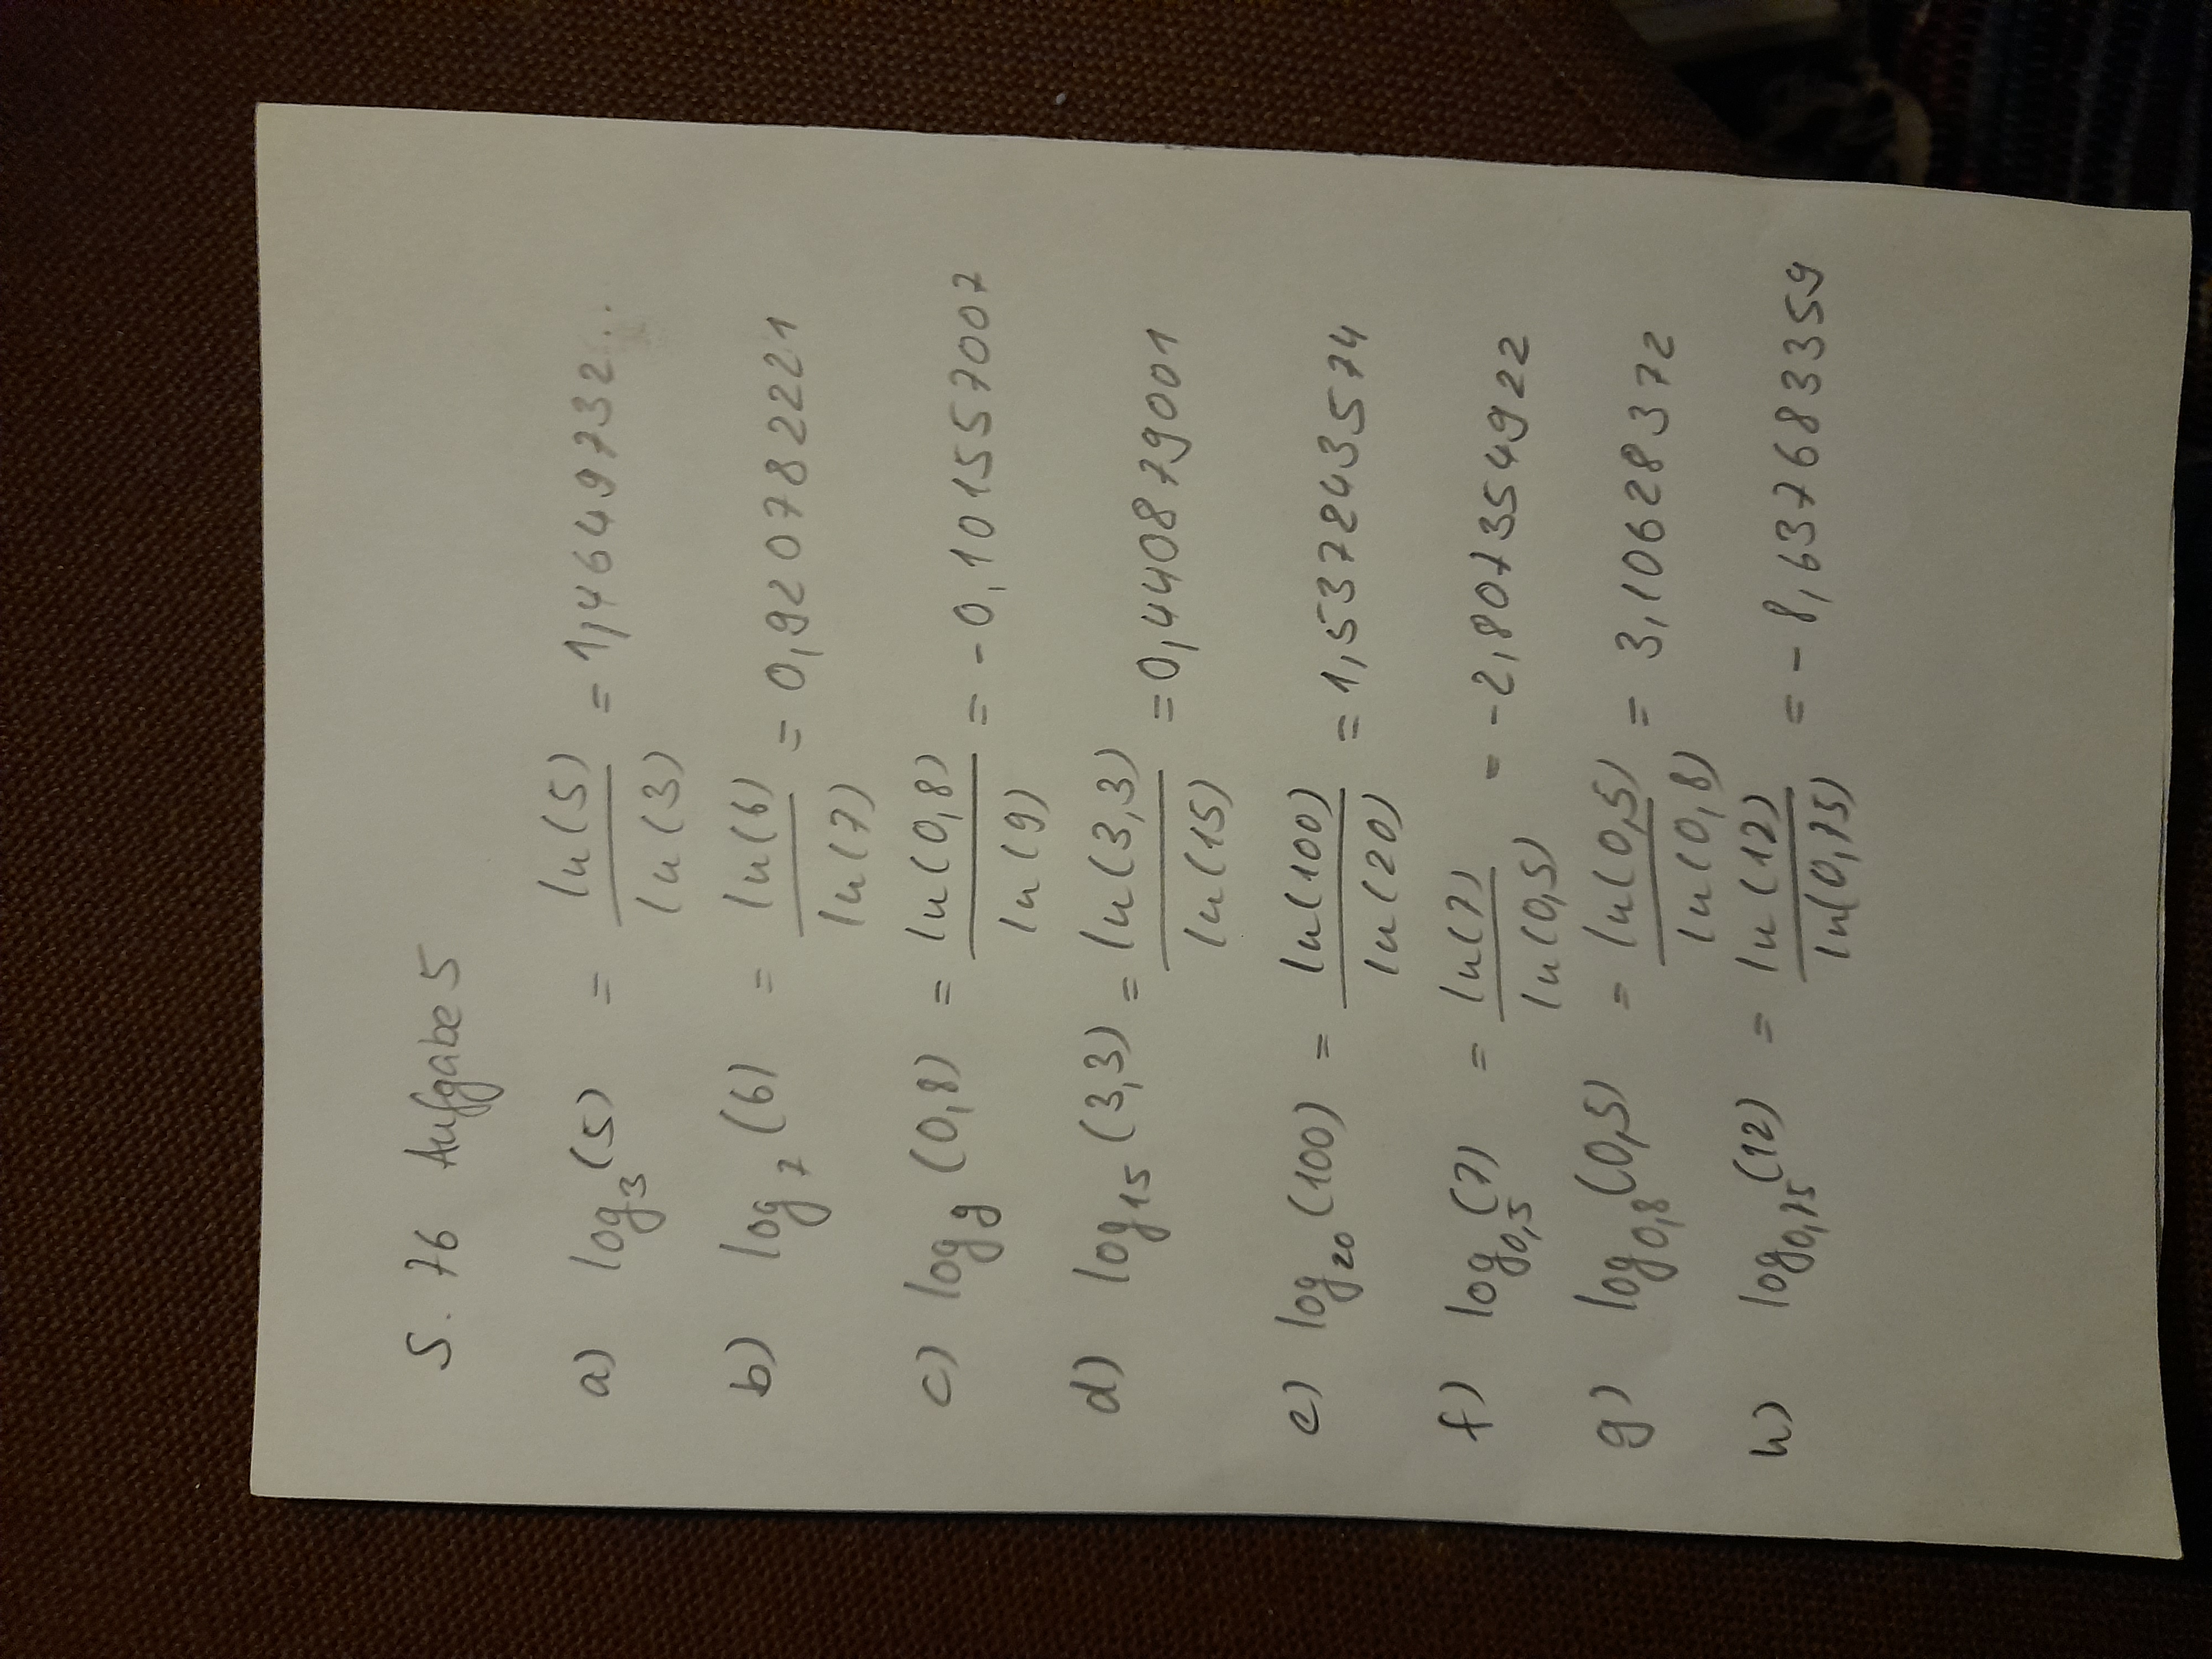 S. 76 Aufgabe 5
a) log₃(5) = ln(5)/ln(3) = 1,46497352...
b) log₇(6) = ln(6)/ln(7) = 0,9207782221
c) log₉(0,8) = ln(0,8)/ln(9) = -0,101557007
d) log₁₅(3,3) = ln(3,3)/ln(15) = 0,4408879001
e) log₂₀(100) = ln(100)/ln(20) = 1,537243574
f) log₀,₅(7) = ln(7)/ln(0,5) = -2,807354922
g) log₀,₈(0,5) = ln(0,5)/ln(0,8) = 3,10628372
h) log₀,₇₅(12) = ln(12)/ln(0,75) = -8,637683359